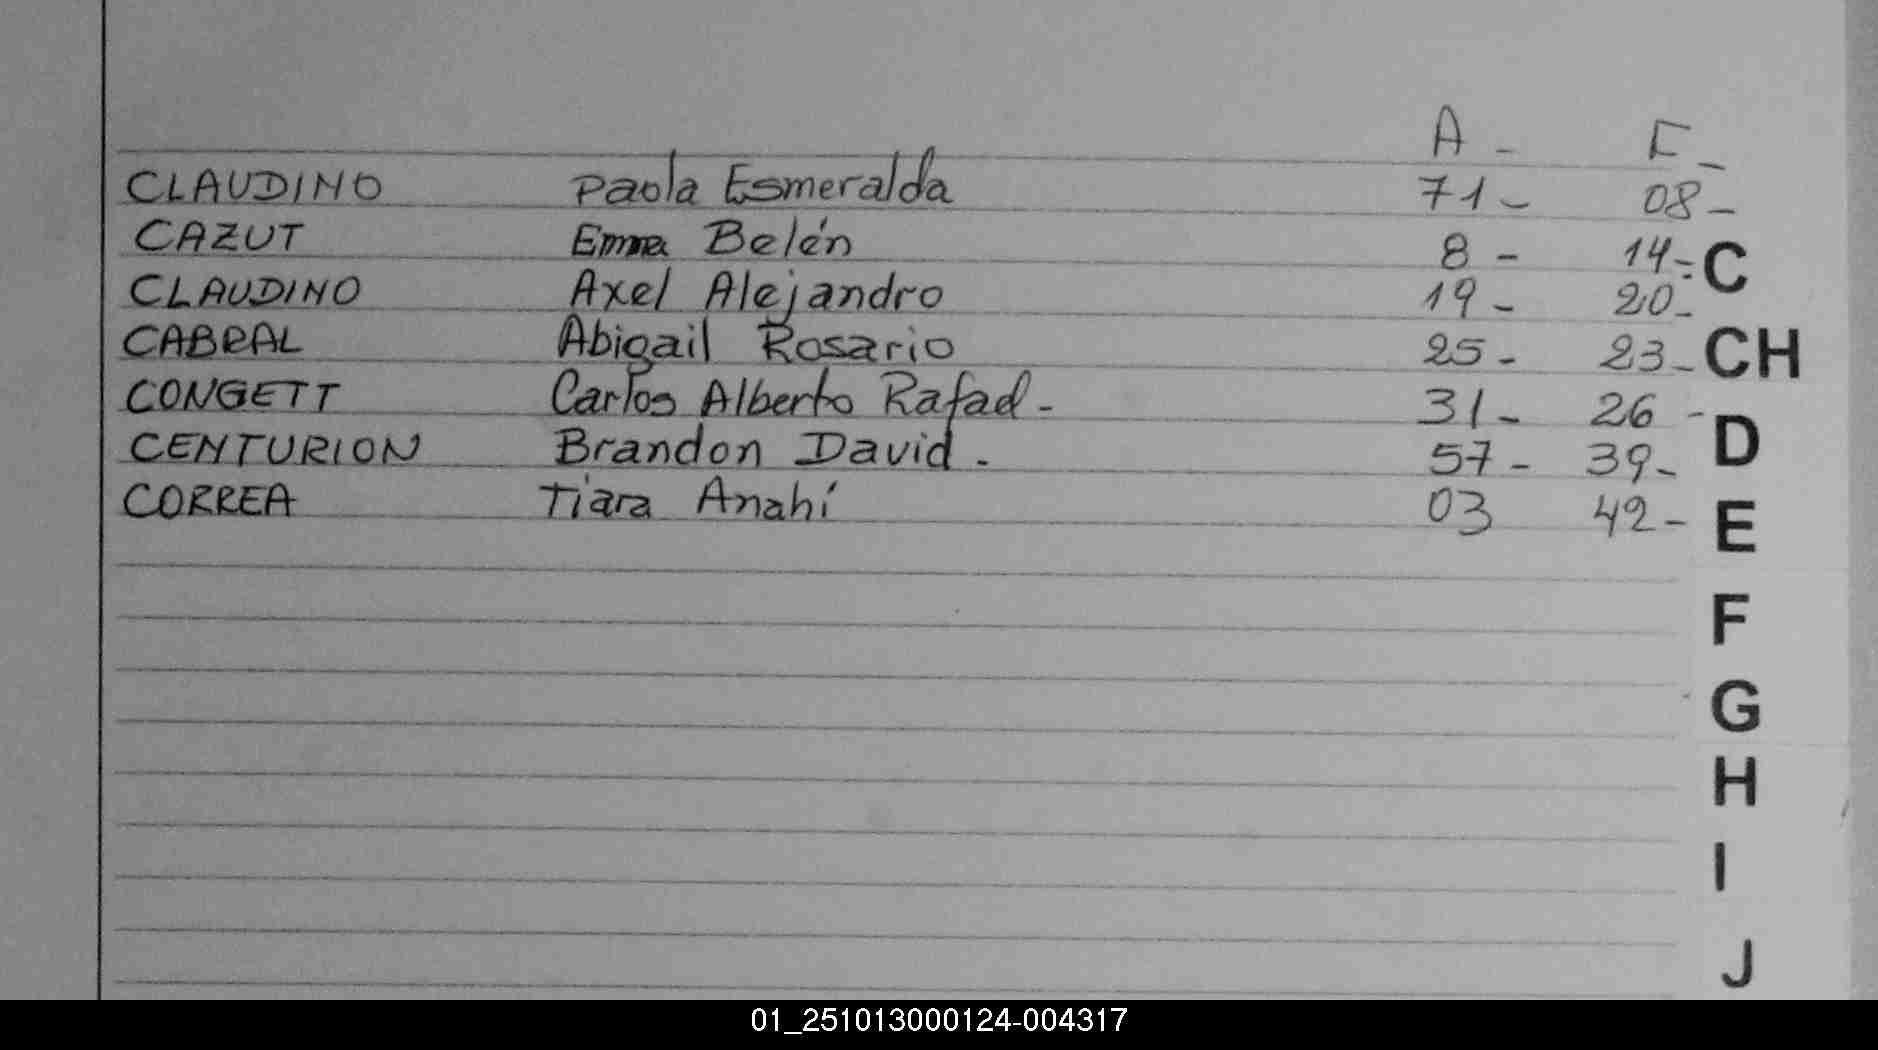 A - F -
CLAUDINO Paola Esmeralda 71 - 08 -
CAZUT Emma Belén 8 - 14 -
C
CLAUDINO Axel Alejandro 19 - 20 -
CABRAL Abigail Rosario 25 - 23 -
CH
CONGETT Carlos Alberto Rafael - 31 - 26 -
D
CENTURION Brandon David - 57 - 39 -
CORREA Tiara Anahí 03 42 -
E
F
G
H
I
J
01_251013000124-004317